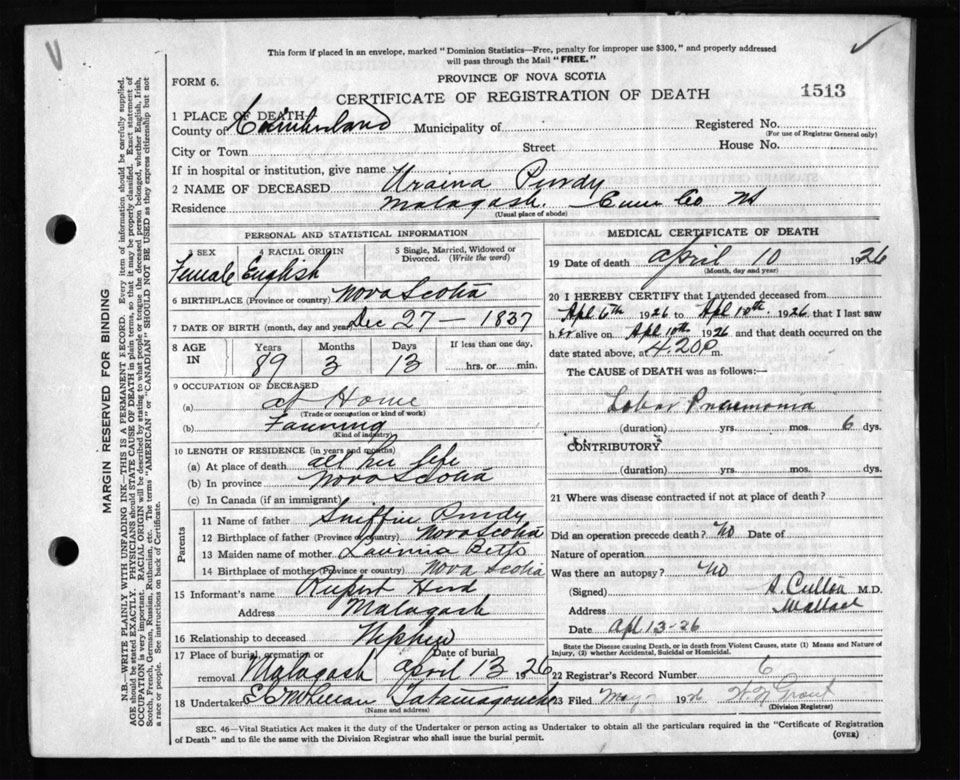 This form if placed in an envelope, marked "Dominion Statistics—Free, penalty for improper use $300," and properly addressed
will pass through the Mail "FREE."
FORM 6.
PROVINCE OF NOVA SCOTIA
CERTIFICATE OF REGISTRATION OF DEATH
1513
1 PLACE OF DEATH
County of Cumberland Municipality of
Registered No.
(For use of Registrar General only)
City or Town Street House No.
If in hospital or institution, give name
2 NAME OF DECEASED Uraina Purdy
Residence Malagash. Cum Co NS
(Usual place of abode)
PERSONAL AND STATISTICAL INFORMATION
3 SEX 4 RACIAL ORIGIN 5 Single, Married, Widowed or
Divorced. (Write the word)
Female English
6 BIRTHPLACE (Province or country) Nova Scotia
7 DATE OF BIRTH (month, day and year) Dec 27 — 1837
8 AGE IN Years Months Days If less than one day,
89 3 13 hrs. or min.
9 OCCUPATION OF DECEASED
(a) at Home
(Trade or occupation or kind of work)
(b) Farming
(Kind of industry)
10 LENGTH OF RESIDENCE (in years and months)
(a) At place of death all her life
(b) In province Nova Scotia
(c) In Canada (if an immigrant)
Parents
11 Name of father Purdy
12 Birthplace of father (Province or country) Nova Scotia
13 Maiden name of mother Betts
14 Birthplace of mother (Province or country) Nova Scotia
15 Informant's name Rupert
Address Malagash
16 Relationship to deceased Nephew
17 Place of burial, cremation or removal Malagash Date of burial April 13 1926
18 Undertaker Tatamagouche
(Name and address)
MEDICAL CERTIFICATE OF DEATH
19 Date of death April 10 1926
(Month, day and year)
20 I HEREBY CERTIFY that I attended deceased from
Apl 6th 1926 to Apl 10th 1926 that I last saw
her alive on Apl 10th 1926 and that death occurred on
date stated above, at 4.20 P m.
The CAUSE of DEATH was as follows:—
Lobar Pneumonia
(duration) yrs. mos. 6 dys.
CONTRIBUTORY
(duration) yrs. mos. dys.
21 Where was disease contracted if not at place of death?
Did an operation precede death? No Date of
Nature of operation
Was there an autopsy? No
(Signed) M.D.
Address Wallace
Date Apl 13-26
State the Disease causing Death, or in death from Violent Causes, state (1) Means and Nature of
Injury, (2) whether Accidental, Suicidal or Homicidal.
22 Registrar's Record Number 6
23 Filed May 1926 Grant
(Division Registrar)
SEC. 46—Vital Statistics Act makes it the duty of the Undertaker or person acting as Undertaker to obtain all the particulars required in the "Certificate of Registration
of Death" and to file the same with the Division Registrar who shall issue the burial permit.
(OVER)
MARGIN RESERVED FOR BINDING
N.B.—WRITE PLAINLY WITH UNFADING INK—THIS IS A PERMANENT RECORD. Every item of information should be carefully supplied.
AGE should be stated EXACTLY. PHYSICIANS should STATE CAUSE OF DEATH in plain terms, so that it may be properly classified. Exact statement of
OCCUPATION is very important. RACIAL ORIGIN will be described by stating to what people or tongue the deceased person belonged, whether English, Irish,
Scotch, French, German, Russian, Ruthenian, etc. The terms "AMERICAN" or "CANADIAN" SHOULD NOT BE USED as they express citizenship but not
a race or people. See instructions on back of Certificate.